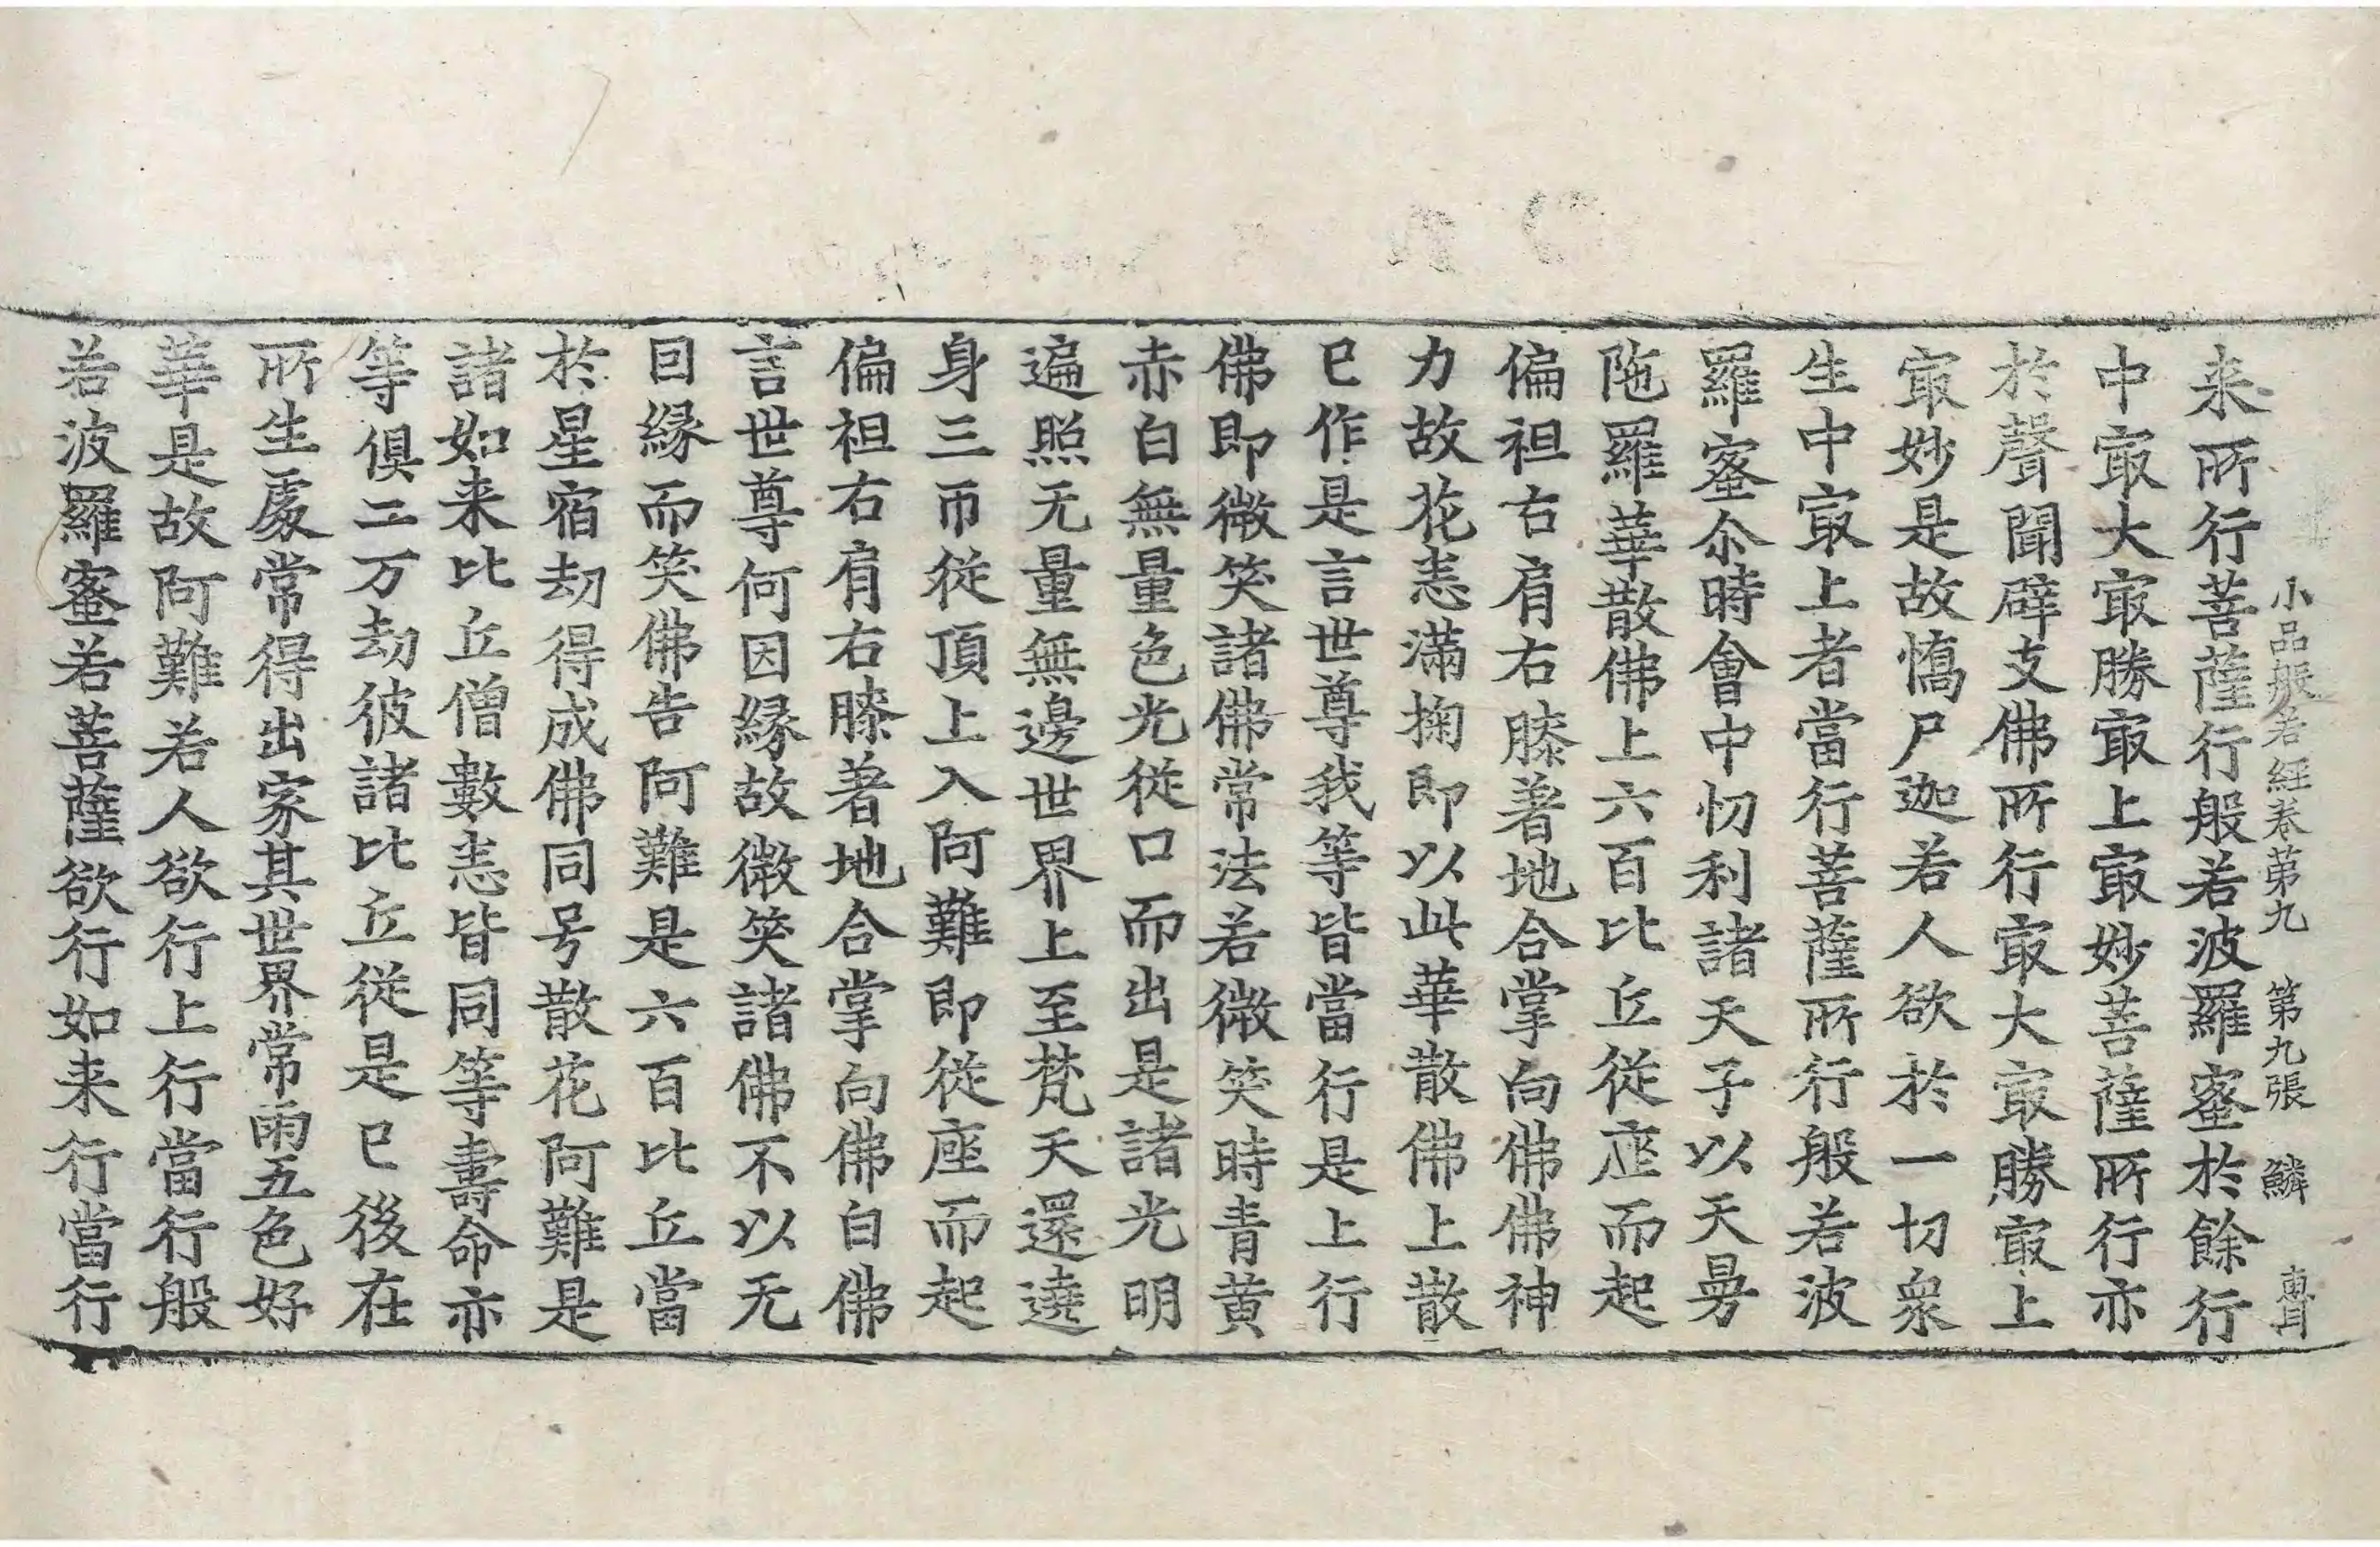 小品般若経卷苐九 第九張 鱗 惠耳
来所行菩薩行般若波羅蜜於餘行
中㝡大㝡勝㝡上㝡妙菩薩所行亦
於聲聞辟支佛所行㝡大㝡勝㝡上
㝡妙是故憍尸迦若人欲於一切衆
生中㝡上者當行菩薩所行般若波
羅蜜尒時會中忉利諸天子以天曼
陁羅華散佛上六百比丘從座而起
偏袒右肩右膝著地合掌向佛佛神
力故花悉滿掬即以此華散佛上散
已作是言世尊我等皆當行是上行
佛即微笑諸佛常法若微笑時青黄
赤白無量色光從口而出是諸光明
遍照无量無邊世界上至梵天還遶
身三帀從頂上入阿難即從座而起
偏袒右肩右膝著地合掌向佛白佛
言世尊何因緣故微笑諸佛不以无
囙緣而笑佛告阿難是六百比丘當
於星宿劫得成佛同号散花阿難是
諸如来比丘僧數悉皆同等壽命亦
等俱二万劫彼諸比丘從是已後在
所生處常得出家其世界常雨五色好
華是故阿難若人欲行上行當行般
若波羅蜜若菩薩欲行如来行當行